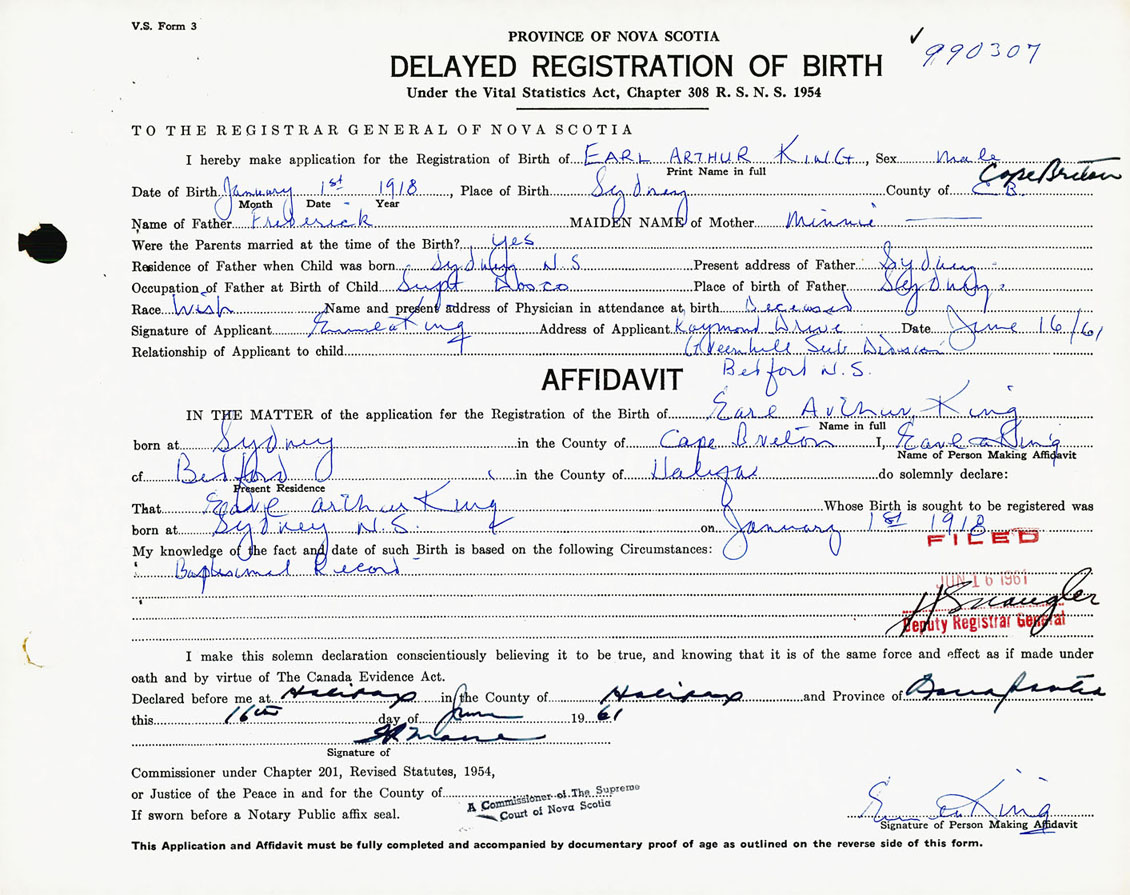 V.S. Form 3
PROVINCE OF NOVA SCOTIA
✓ 990307
DELAYED REGISTRATION OF BIRTH
Under the Vital Statistics Act, Chapter 308 R. S. N. S. 1954
TO THE REGISTRAR GENERAL OF NOVA SCOTIA
I hereby make application for the Registration of Birth of EARL ARTHUR KING, Sex male
Print Name in full
Cape Breton
Date of Birth January 1st 1918, Place of Birth Sydney County of C B.
Month Date Year
Name of Father Frederick MAIDEN NAME of Mother Minnie
Were the Parents married at the time of the Birth? yes
Residence of Father when Child was born Sydney N.S Present address of Father Sydney
Occupation of Father at Birth of Child Supt Place of birth of Father Sydney.
Race Name and present address of Physician in attendance at birth Deceased
Signature of Applicant King Address of Applicant Raymond Drive Date June 16/61
Relationship of Applicant to child Greenhill Sub Division
Bedford N.S.
AFFIDAVIT
IN THE MATTER of the application for the Registration of the Birth of Earl Arthur King
Name in full
born at Sydney in the County of Cape Breton I, Earl a King
Name of Person Making Affidavit
of Bedford in the County of Halifax do solemnly declare:
Present Residence
That Earl arthur King Whose Birth is sought to be registered was
born at Sydney N.S. on January 1st 1918
My knowledge of the fact and date of such Birth is based on the following Circumstances:
FILED
Baptismal Record
JUN 16 1961
Deputy Registrar General
I make this solemn declaration conscientiously believing it to be true, and knowing that it is of the same force and effect as if made under
oath and by virtue of The Canada Evidence Act.
Declared before me at Halifax in the County of Halifax and Province of Nova Scotia
this 16th day of June 19 61
Signature of
Commissioner under Chapter 201, Revised Statutes, 1954,
or Justice of the Peace in and for the County of
A Commissioner of The Supreme
Court of Nova Scotia
If sworn before a Notary Public affix seal.
King
Signature of Person Making Affidavit
This Application and Affidavit must be fully completed and accompanied by documentary proof of age as outlined on the reverse side of this form.